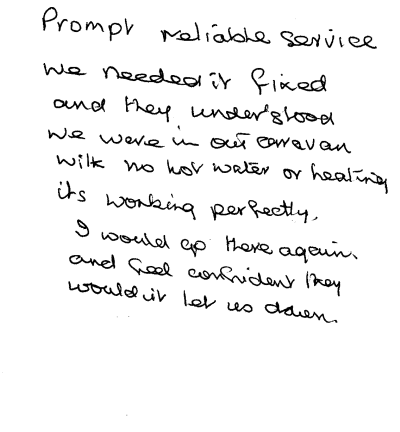 Prompt reliable service
we needed it fixed
and they understood
we were in our caravan
with no hot water or heating
its working perfectly.
I would go there again.
and feel confident they
would'it let us down.